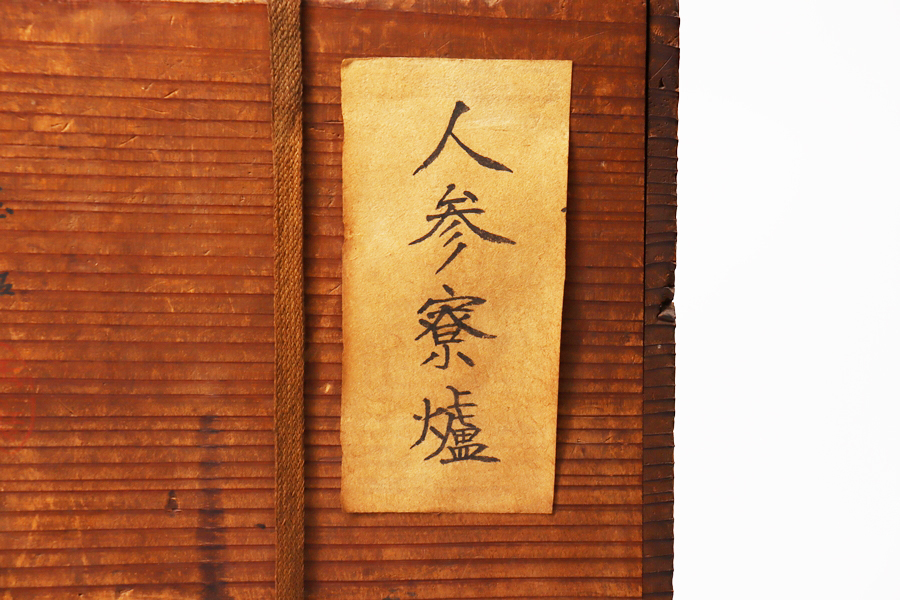 人参寮爐